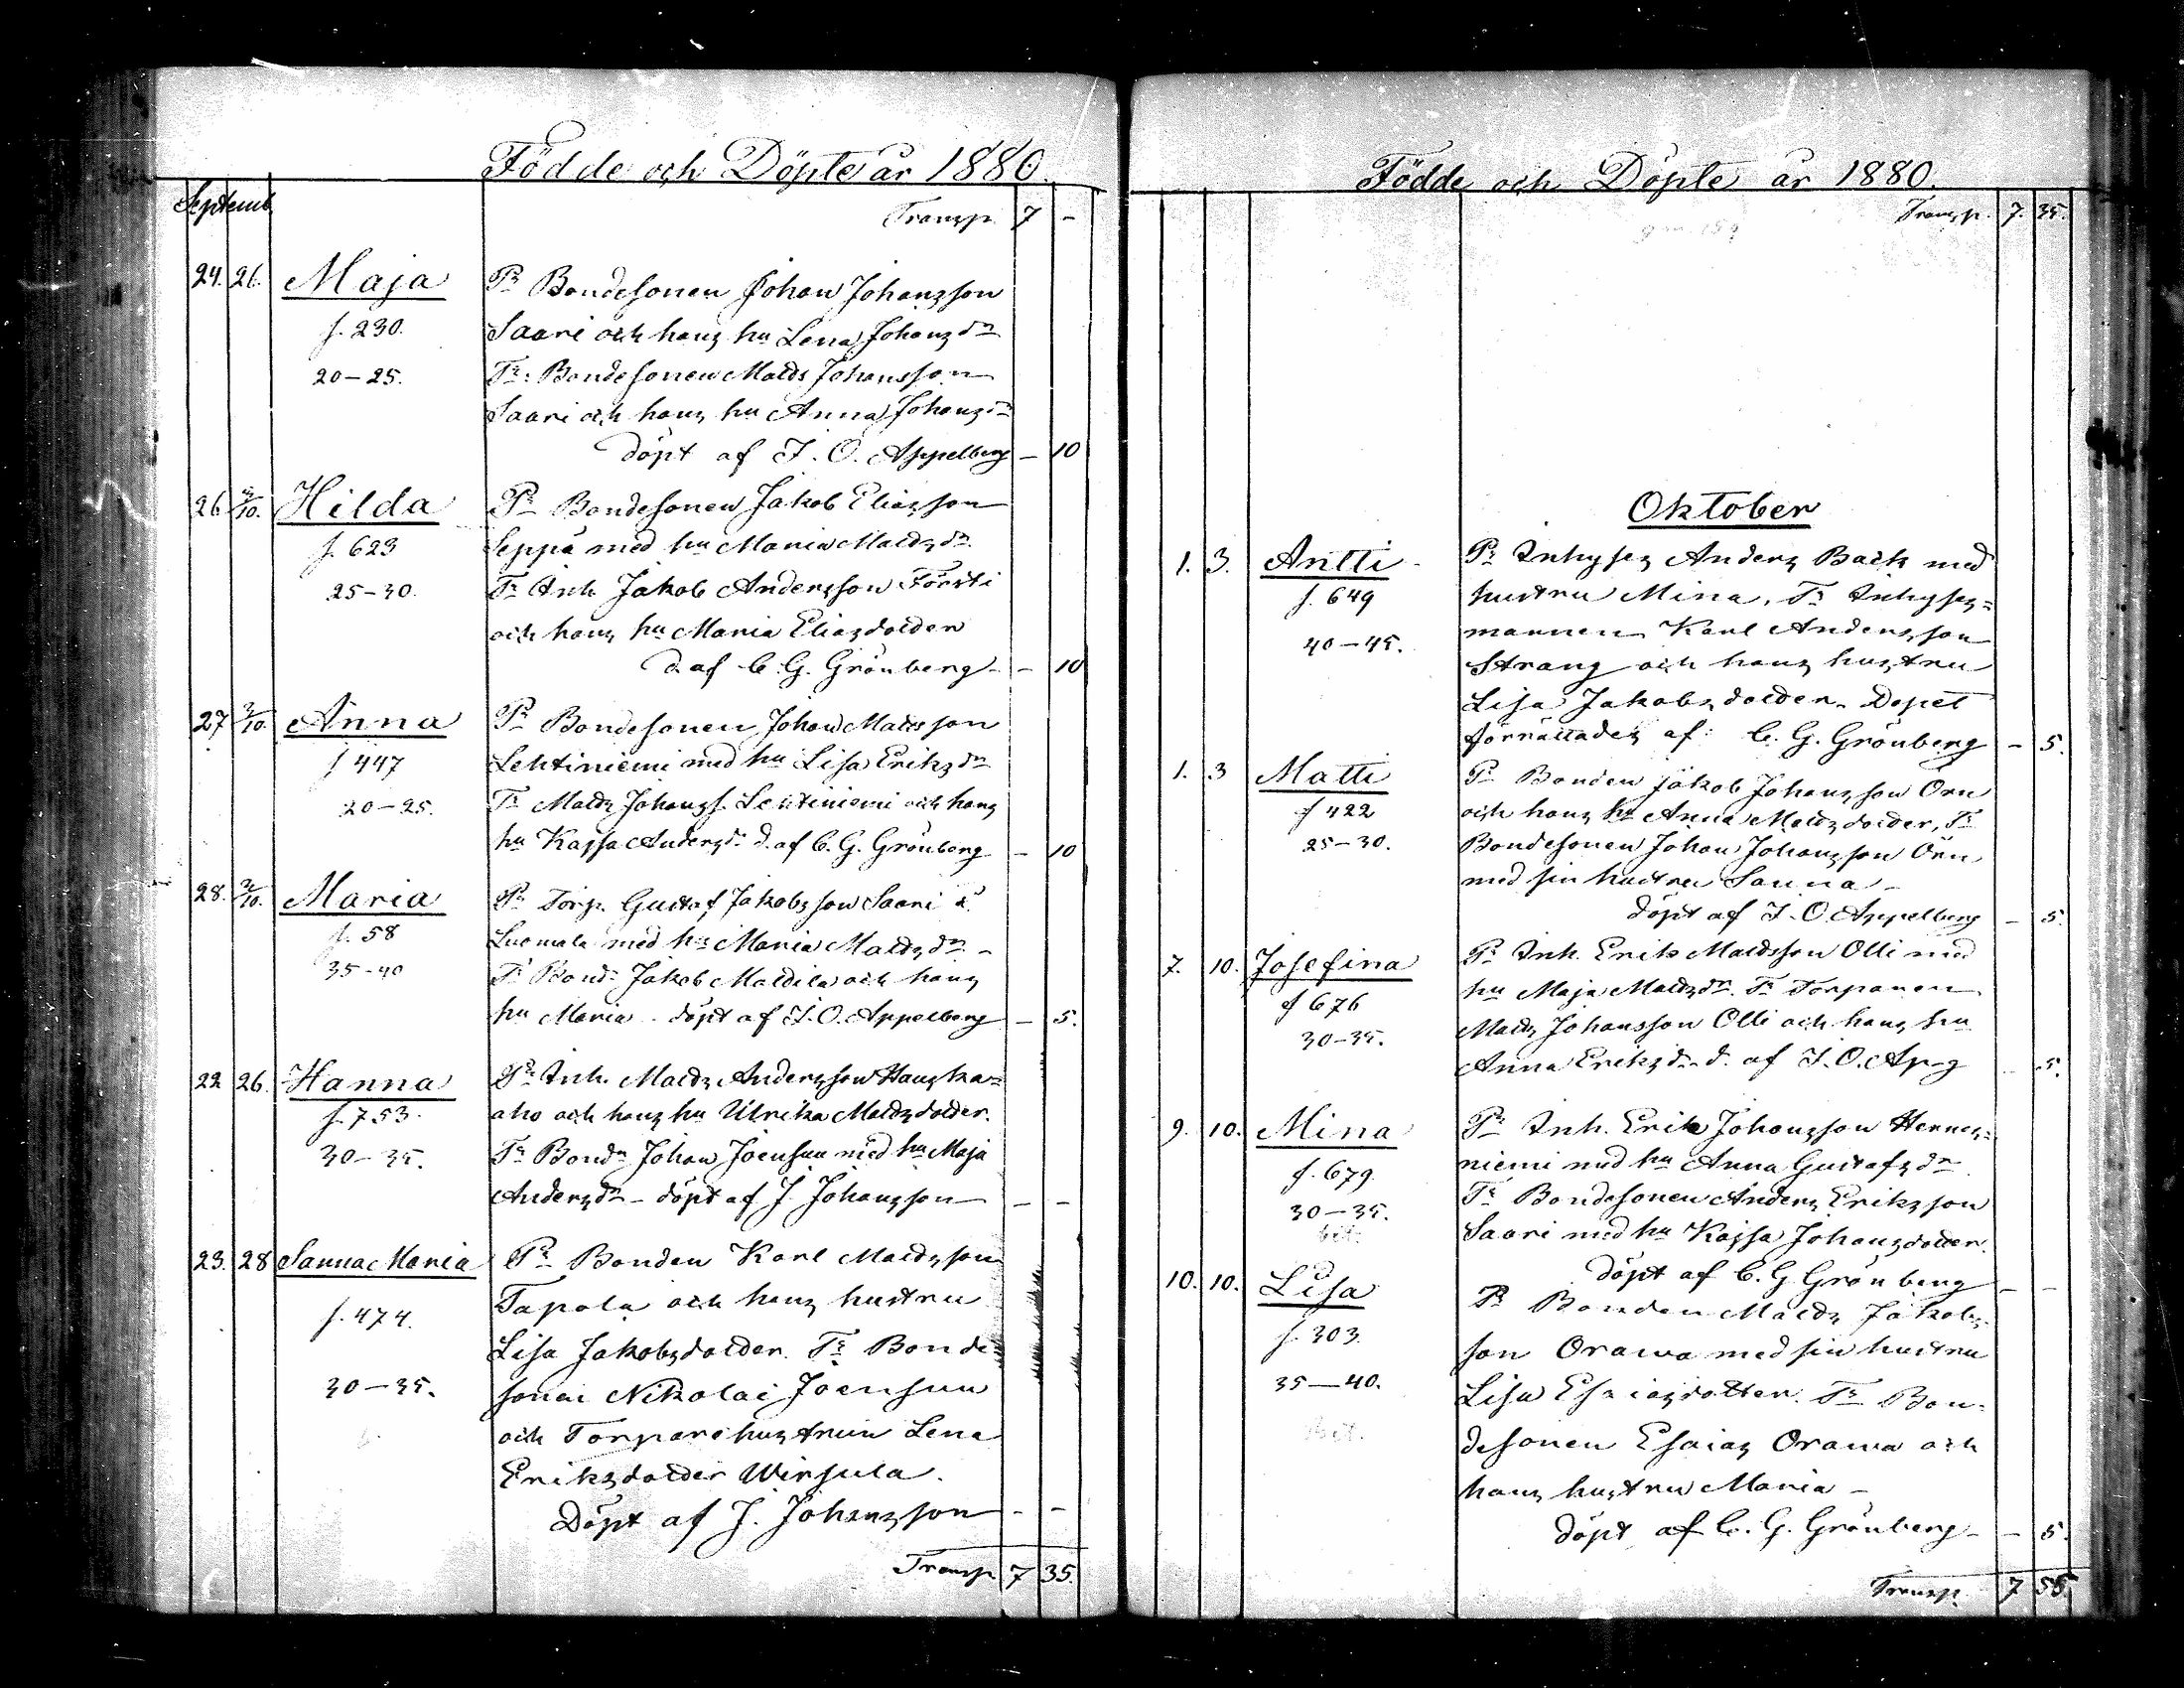 Födde och Döpte år 1880.
Septemb.
Transp. 7 -
24. 26. Maja Pr Bondesonen Johan Johansson
f. 230. Saari och hans hu Lena Johansdr
20-25. Tr: Bondesonen Matts Johansson
Saari och hans hu Anna Johansdr
döpt af J. O. Appelberg - 10
26 3/10. Hilda Pr Bondesonen Jakob Eliasson
f. 623 Seppä med hu Maria Mattsdr
25-30. Tr Inh Jakob Andersson Försti
och hans hu Maria Eliasdotter
d. af C. G. Grönberg - - 10
27 3/10. Anna Pr Bondesonen Johan Mattsson
f 447 Lehtiniemi med hu Lisa Eriksdr
20-25. Tr Matts Johanss. Lehtiniemi och hans
hu Kajsa Andersdr d. af C. G. Grönberg - 10
28. 3/10. Maria Pr Torp. Gustaf Jakobsson Saari å
f. 58 Luomala med hu Maria Mattsdr -
35-40 Tr Bond: Jakob Mattila och hans
hu Maria - döpt af J. O. Appelberg - 5.
22 26. Hanna Pr Inh. Matts Andersson Hauska=
f. 753. aho och hans hu Ulrika Mattsdotter.
30-35. Tr Bondn Johan Joensuu med hu Maja
Andersdr - döpt af J. Johansson - -
23. 28 Sanna Maria Pr Bonden Karl Mattsson
f. 474. Tapola och hans hustru
Lisa Jakobsdotter. Tr Bonde=
30-35. sonen Nikolai Joensuu
och Torparehustrun Lena
Eriksdotter Wirsula.
Döpt af J. Johansson - -
Transp 7 35.
Födde och Döpte år 1880.
Transp. 7. 35.
Oktober
1. 3. Antti Pr Inhyses Anders Back med
f. 649 hustru Mina, Tr Inhyses=
40-45. mannen Karl Andersson
Strang och hans hustru
Lisa Jakobsdotter. Dopet
förrättades af: C. G. Grönberg - 5.
1. 3 Matti Pr Bonden Jakob Johansson Örn
f 422 och hans hu Anna Mattsdotter, Tr
25-30. Bondesonen Johan Johansson Örn
med sin hustru Sanna -
döpt af J. O. Appelberg - 5.
7. 10. Josefina Pr Inh. Erik Mattsson Olli med
f 676 hu Maja Mattsdr. Tr Torparen
30-35. Matts Johansson Olli och hans hu
Anna Eriksdr d. af J. O. Ap-g - 5.
9. 10. Mina Pr Inh. Erik Johansson Hernes=
f. 679. niemi med hu Anna Gustafsdr
30-35. Tr Bondesonen Anders Eriksson
bet. Saari med hu Kajsa Johansdotter.
döpt af C. G. Grönberg - -
10. 10. Lisa Pr Bonden Matts Jakobs=
f. 303. son Orawa med sin hustru
35-40. Lisa Esaiasdotter. Tr Bon=
bet. desonen Esaias Orawa och
hans hustru Maria -
döpt af C. G. Grönberg - - 5.
Transp. 7 55.